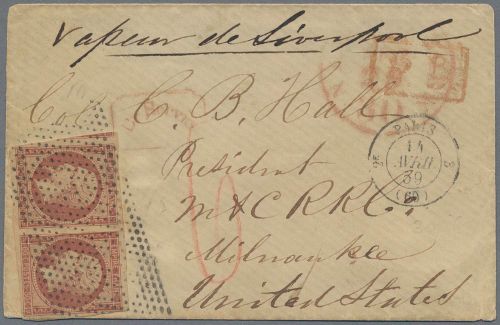 Vapeur de Liverpool
Col C. B. Hall
President
M & C R R Co.
Milwaukee
United States
PARIS
14
AVRIL
59
(60)